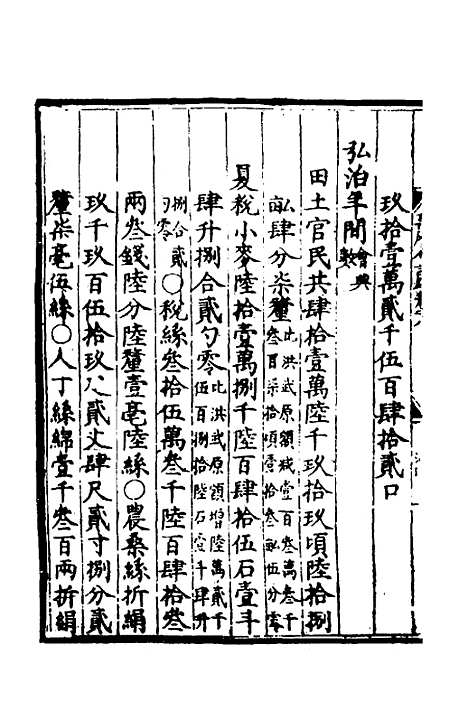 玖拾壹萬貳千伍百肆拾貳口
弘治年間會典數
田土官民共肆拾壹萬陸千玖拾玖頃陸拾捌
畝肆分柒釐比洪武原額減壹百叁萬叁千叁百柒拾頃壹拾叁畝伍分零
夏稅小麥陸拾壹萬捌千陸百肆拾伍石壹斗
肆升捌合貳勺零比洪武原額增陸萬貳千伍百捌拾陸石壹千肆升
捌合貳勺零〇稅絲叁拾伍萬叁千陸百肆拾叁
兩叁錢陸分陸釐壹毫陸絲〇農桑絲折絹
玖千玖百伍拾玖疋貳丈肆尺貳寸捌分貳
釐柒毫伍絲〇人丁絲綿壹千叁百兩折絹